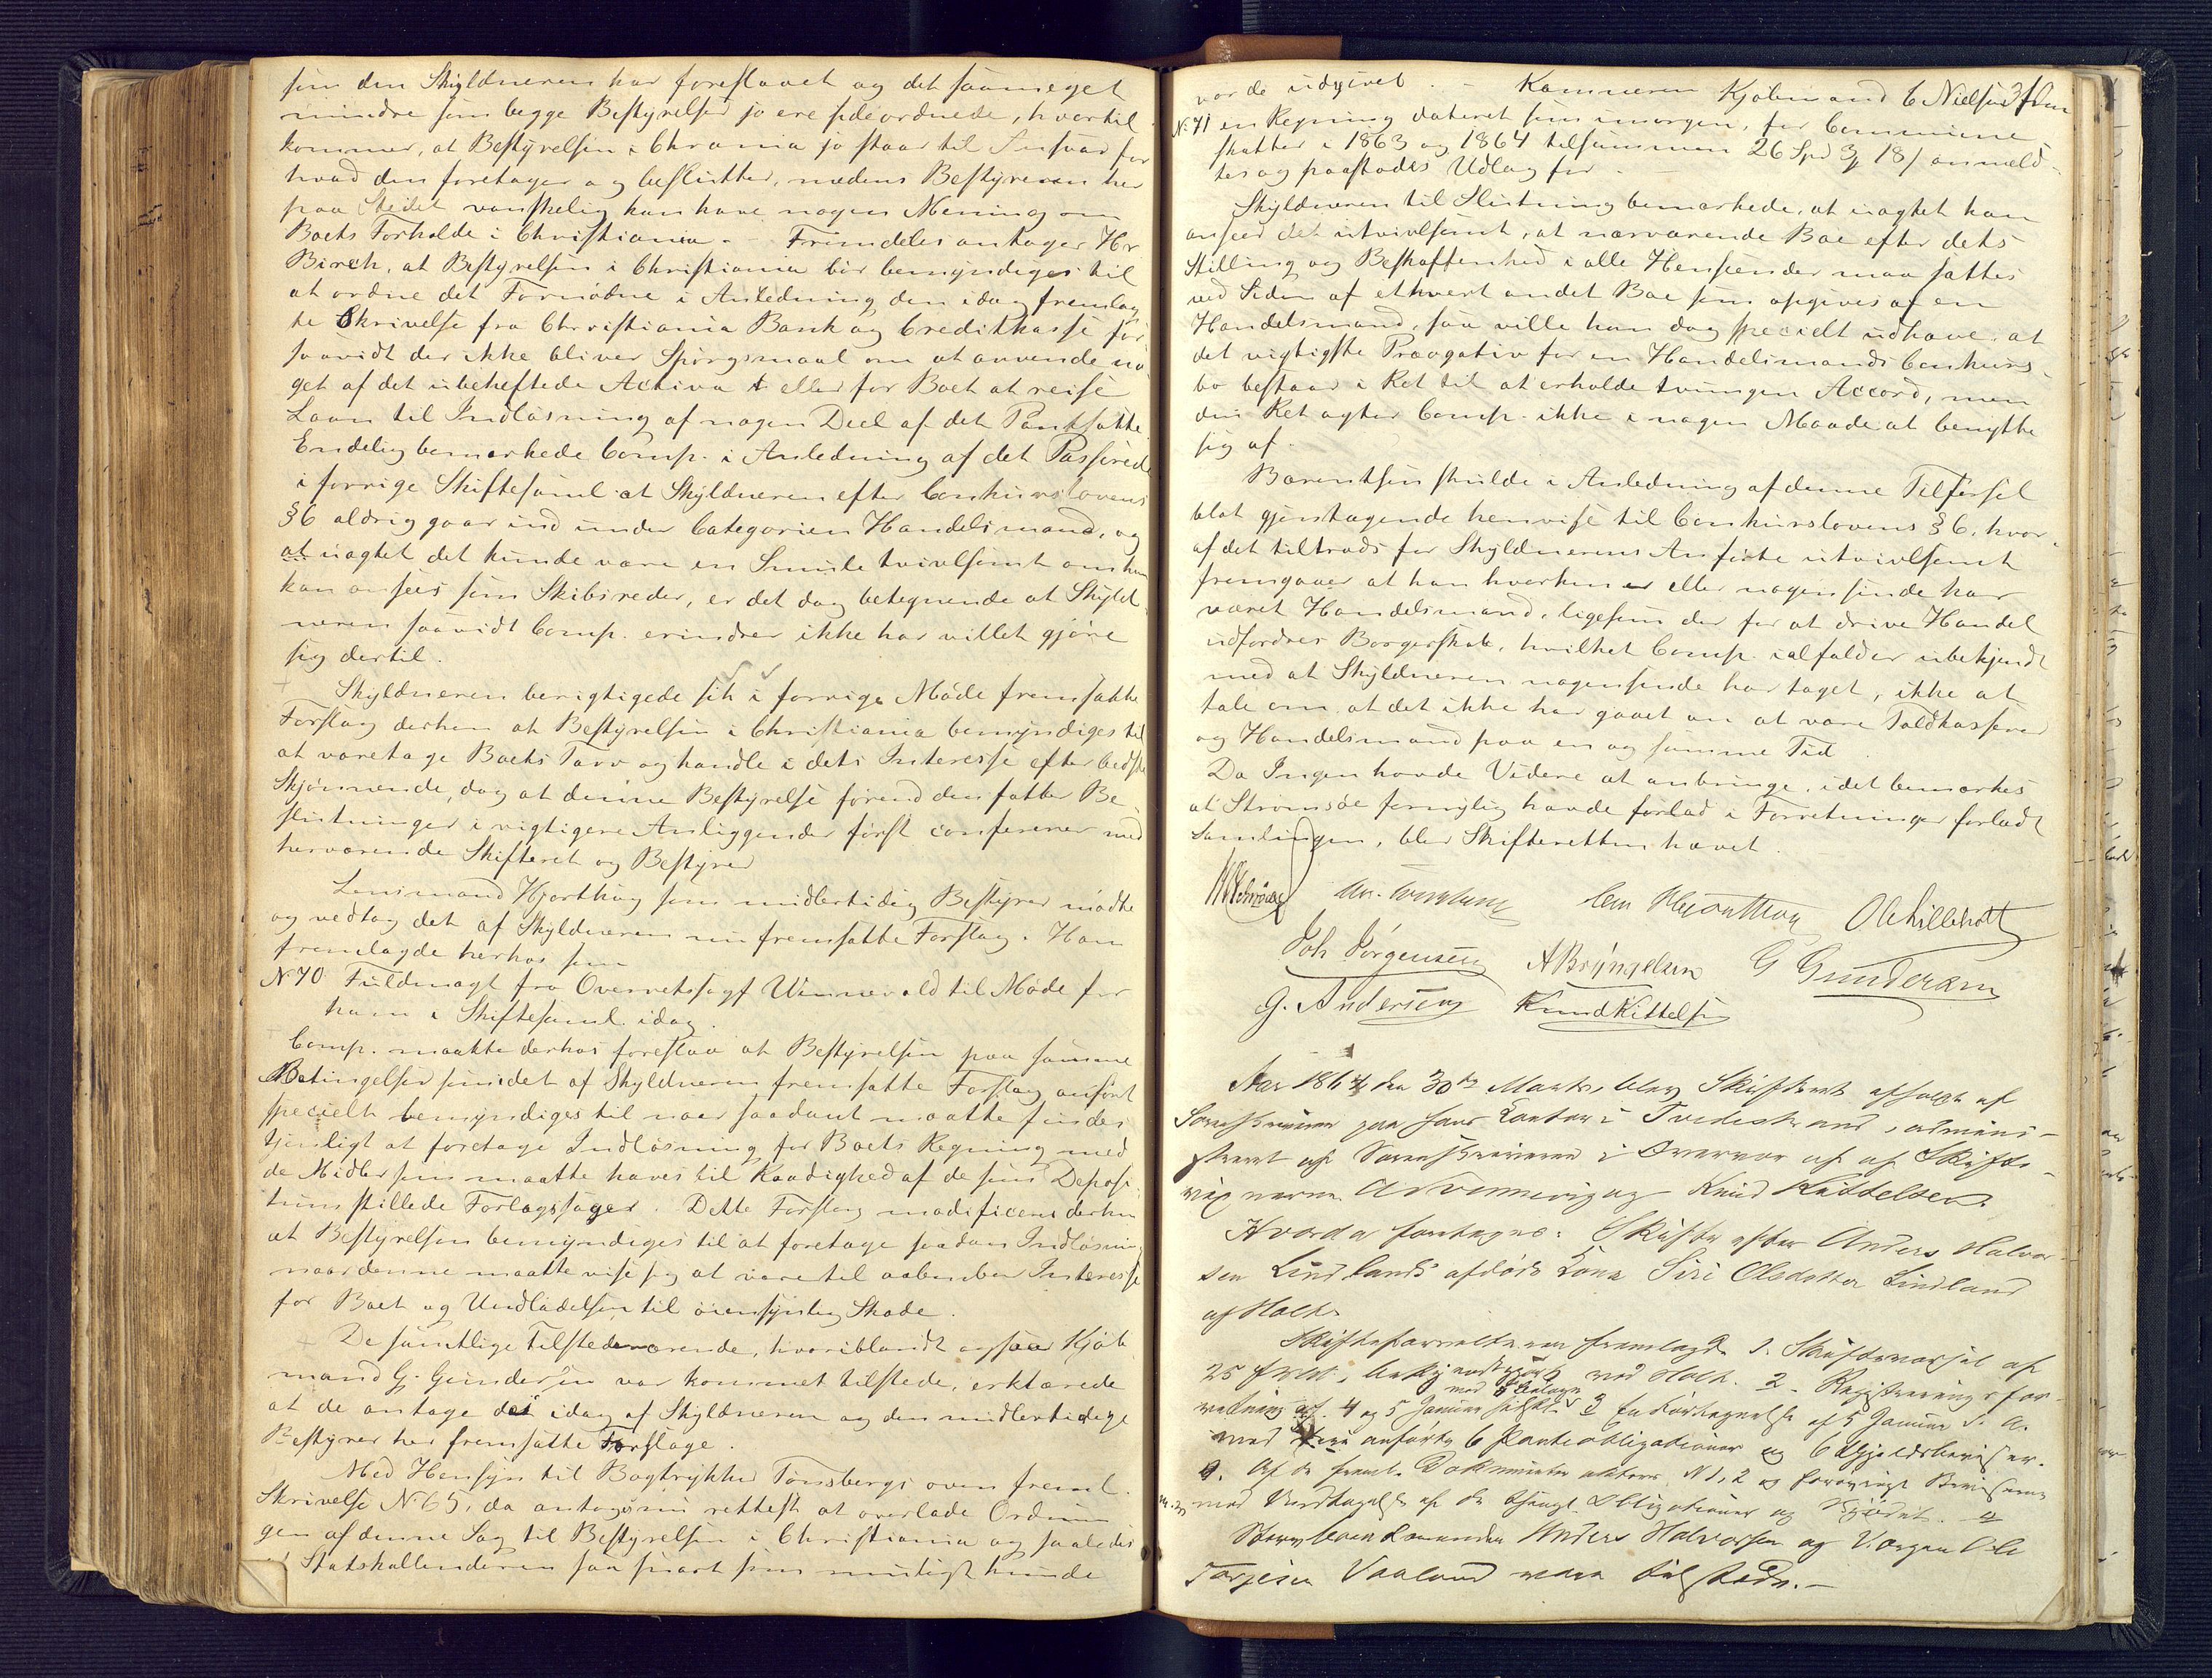 som den Skyldneren har foreslaaet og det saameget
mindre som begge Bestyrelser jo ere sideordnede, hvortil
kommer, at Bestyrelsen i Chrania jo staar til Ansvar for
hvad den foretager og beslutter, medens Bestyreren her
paa Stedet vanskelig kan have nogen Mening om
Boets Forholde i Christiania. - Fremdeles antager Hr
Birch, at Bestyrelsen i Christiania bør bemyndiges til
at ordne det Fornødne i Anledning den idag fremlag
te Skrivelse fra Christiania Bank og Creditkasse for
saavidt der ikke bliver Spørgsmaal om at anvende no
get af det ubeheftede Activa eller for Boet at reise
Laan til Indløsning af nogen Deel af det Pantsatte.
Endelig bemærkede Comp. i Anledning af det Passerede
i forrige Skiftesaml. at Skyldneren efter Conkurslovens
§6 aldrig gaar ind under Categorien Handelsmand, og
at uagtet det kunde være en Smule tvivlsomt om han
kan ansees som Skibsreder, er det dog betegnende at Skyld
neren saavidt Comp. erindrer ikke har villet gjøre
sig dertil.
Skyldneren berigtigede sit i forrige Møde fremsatte
Forslag derhen at Bestyrelsen i Christiania bemyndiges til
at varetage Boets Tarv og handle i dets Interesse efter bedste
Skjønnende, dog at denne Bestyrelse førend den fatter Be-
slutninger i vigtigere Anliggender først confererer med
herværende Skifteret og Bestyrer
Lensmand Hjorthaug som midlertidig Bestyrer mødte
og vedtog det af Skyldneren nu fremsatte Forslag. Han
fremlagde herhos som
N 70 Fuldmagt fra Overretssagf Winnevold til Møde for
ham i Skiftesaml. idag.
Comp. maatte derhos foreslaa at Bestyrelsen paa samme
Betingelser som i det af Skyldneren fremsatte Forslag anført
specielt bemyndiges til naar saadant maatte findes
tjenligt at foretage Indløsning for Boets Regning med
de Midler som maatte haves til Raadighed af de som Deposi
tum stillede Forlagssager. Dette Forslag modificeres derhen
at Bestyrelsen bemyndiges til at foretage saadan Indløsning
naar denne maatte vise sig at være til aabenbar Interesse
for Boet og Undladelsen til øiensynlig Skade.
De samtlige Tilstedeværende, hvoriblandt ogsaa Kjøb
mand G. Gundersen var kommet tilstede, erklærede
at de antage det idag af Skyldneren og den midlertidige
Bestyrer her fremsatte Forslage.
Med Hensyn til Bogtrykker Tønsbergs oven freml.
Skrivelse N 65, da antoges rettest at overlade Ordnin
gen af denne Sag til Bestyrelsen i Christiania og saaledes
Statskallenderen saa snart som muligt kunde
vorde udgivet. - Kjøbmand C Nielsen
N 71 en Regning dateret som imorgen, for Commune
skatter i 1863 og 1864 tilsammen 26 Spd 3 18/ anmeld-
tes og paastodes Udlæg for.
Skyldneren til Slutning bemærkede, at uagtet han
anseer det utvivlsomt, at nærværende Boe efter dets
Stilling og Beskaffenhed i alle Henseender maa sættes
ved Siden af ethvert andet Boe som opgives af en
Handelsmand, saa ville han dog specielt udhæve, at
det vigtigste Prærogativ for en Handelsmands Conkurs-
bo bestaar i Ret til at erholde tvungen Accord, men
den Ret agter Comp. ikke i nogen Maade at benytte
sig af.
Barentsen skulde i Anledning af denne Tilførsel
blot gjentagende henvise til Conkurslovens §6, hvor-
af det tiltrods for Skyldnerens Anførte utvivlsomt
fremgaaer at han hverken er eller nogensinde har
været Handelsmand, ligesom der for at drive Handel
udfordres Borgerskab, hvilket Comp. ialfald er ubekjendt
med at Skyldneren nogensinde har taget, ikke at
tale om, at det ikke har gaaet an at være Toldkasserer
og Handelsmand paa en og samme Tid
Da Ingen havde Videre at anbringe, idet bemærkes
at Strømsøe formylig havde forlad i Forretninger forladt
Samlingen, blev Skifteretten hævet.
Ole Lilleholt
Joh Jörgensen A Bryngelsen G Gundersen
G. Andersen Knud Kittelsen
Aar 1864 den 30te Marts, blev Skifteret afholdt af
Sorenskriveren paa hans Contor i Tvedestrand, admini-
streret af Sorenskriveren i Overvær af af Skifte-
vidnerne og Knud Kittelsen.
Hvorda foretoges: Skifte efter Anders Halvor-
sen Lindlands afdøde Kone Siri Olsdatter Lindland
af Holt.
Skifteforvalteren fremlagde 1. Skiftevarsel af
25 f. M., bekjendtgjort ved Holt. 2. Registreringsfor-
med Bilag
retning af 4 og 5 Januar sidstl. 3 En Fortegnelse af 5 Januar d. A.
med anførte 6 Panteobligationer og 6 Gjeldsbeviser.
Af de freml. Dokumenter akteres N 1, 2 og
med Undtagelse af de Obligationer og
Anders Halvorsen og Værgen Ole
Tarjesen Vaaland vare tilstede.-